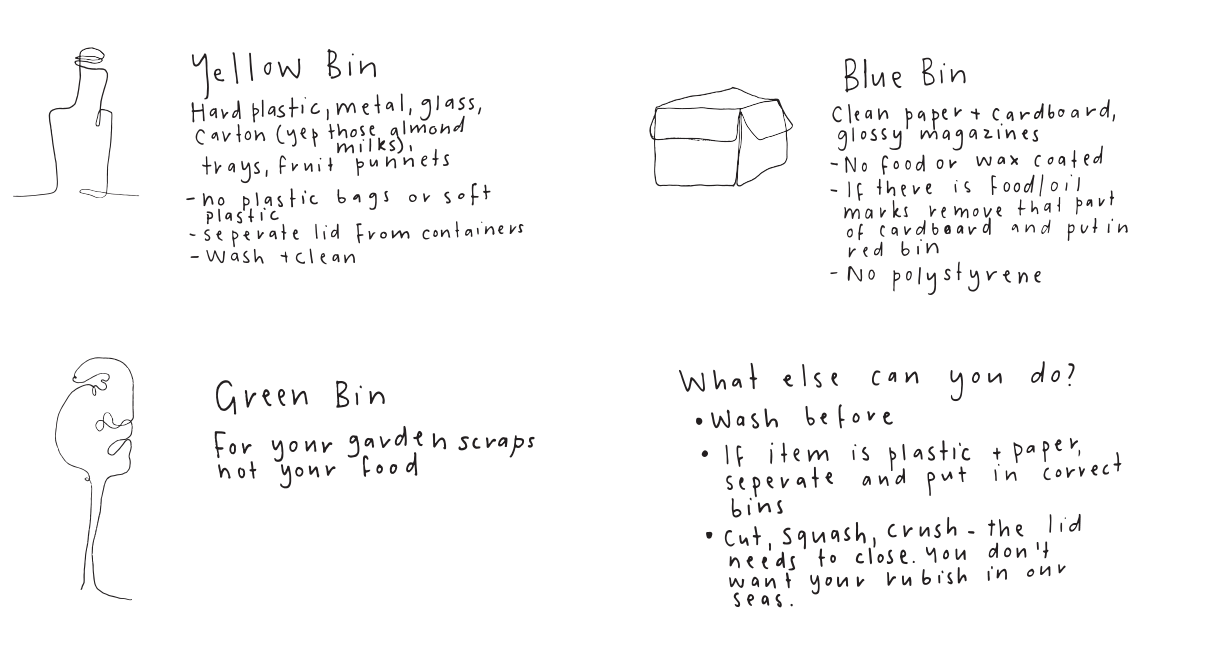 Yellow Bin
Hard plastic, metal, glass,
carton (yep those almond
milks),
trays, fruit punnets
- no plastic bags or soft
plastic
- seperate lid from containers
- Wash + clean
Blue Bin
Clean paper + cardboard,
glossy magazines
- No food or wax coated
- If there is food/oil
marks remove that part
of cardboard and put in
red bin
- No polystyrene
Green Bin
For your garden scraps
not your food
What else can you do?
• Wash before
• If item is plastic + paper,
seperate and put in correct
bins
• Cut, squash, crush - the lid
needs to close. you don't
want your rubish in our
seas.